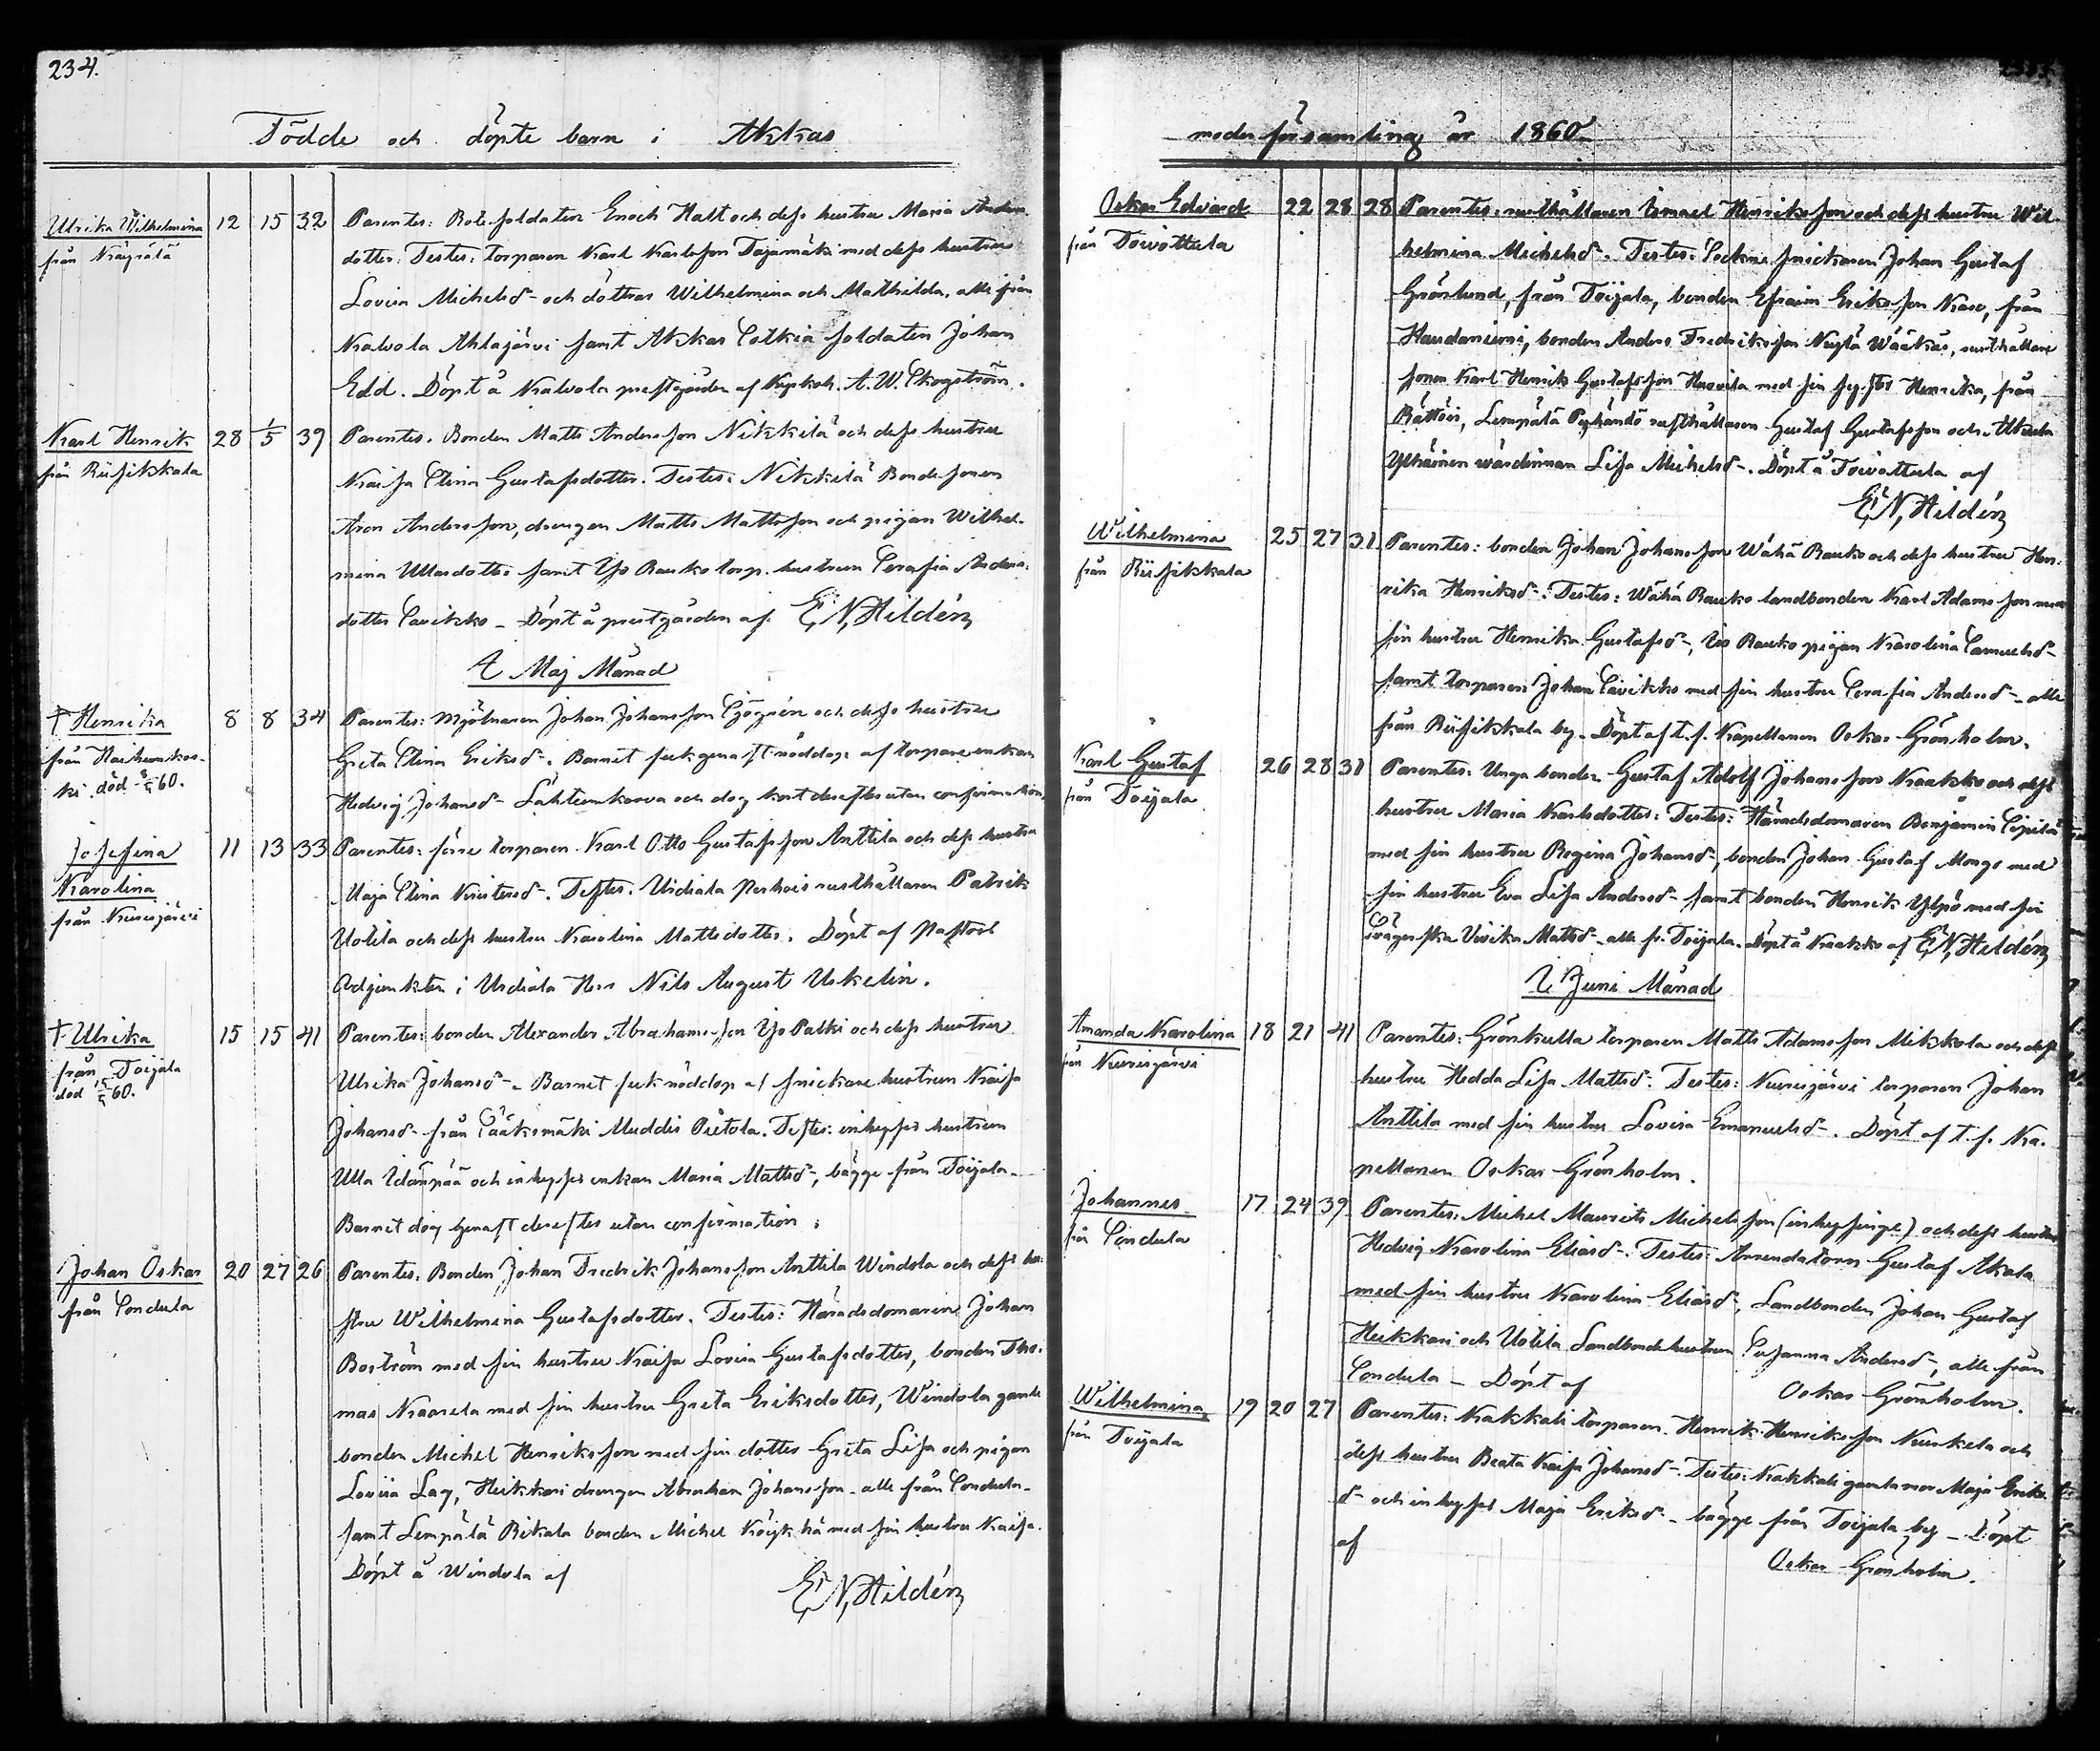 234.
Födde och döpte barn i Akkas
Ulrika Wilhelmina 12 15 32 Parentes: Rotesoldaten Enoch Halt och dess hustru Maria Anders
från Kägrälä dotter. Testes: torparen Karl Karlsson Tojamäki med dess hustru
Lovisa Michelsdr och döttrar Wilhelmina och Mathilda, alla från
Kalvola Ahlajärvi samt Akkas soldaten Johan
Edd. Döpt å Kalvola prestgården af A. W. Skogström.
Karl Henrik 28 1/5 39 Parentes. Bonden Matts Andersson Nikkilä och dess hustru
från Riisikkala Kaisa Stina Gustafsdotter. Testes: Nikkilä Bondesonen
Aron Andersson, drengen Matts Mattsson och pigan Wilhel-
mina Ullasdotter samt Yso Rauko torp. hustrun Serafia Anders-
dotter Savikko – Döpt å prestgården af E, N, Hildén
I Maj Månad
† Henrika 8 8 34 Parentes: Mjölnaren Johan Johansson Sjögrén och dess hustru
från Haihunkos- Greta Stina Eriksdr. Barnet fick genast nöddop af torpareenkan
ki. död 8/5 60. Hedvig Johansdr Lahteenkorva och dog kort derefter utan confirmation.
Josefina 11 13 33 Parentes: förre torparen Karl Otto Gustafsson Anttila och dess hustru
Karolina Maja Stina Kristersdr. Testes. Urdiala rusthållaren Patrik
från Kurisjärvi Uotila och dess hustru Karolina Mattsdotter. Döpt af Pastors
Adjunkten i Urdiala Herr Nils August Uskelin.
† Ulrika 15 15 41 Parentes: bonden Alexander Abrahamsson Yso Palki och dess hustru
från Toijala Ulrika Johansdr. Barnet fick nöddop af snickare hustrun Kaisa
död 15/5 60. Johansdr från Sääksmäki Muddis Pietola. Testes: inhyses hustrun
Ulla Idänpää och inhyses enkan Maria Mattsdr, bägge från Toijala.
Barnet dog genast derefter utan confirmation.
Johan Oskar 20 27 26 Parentes: Bonden Johan Fredrik Johansson Anttila Windola och dess hu-
från Sondula stru Wilhelmina Gustafsdotter. Testes: Häradsdomaren Johan
Boström med sin hustru Kaisa Lovisa Gustafsdotter, bonden Tho-
mas Kaarela med sin hustru Greta Eriksdotter, Windola gamle
bonden Michel Henriksson med sin dotter Greta Lisa och pigan
Lovisa Lag, Heikkari drengen Abraham Johansson – alla från Sondula
samt Lempälä Rikala bonden Michel med sin hustru Kaisa.
Döpt å Windola af
E, N, Hildén
moderförsamling år 1860.
Oskar Edvard 22 28 28 Parentes: rusthållaren Ismael Henriksson och dess hustru Wil-
från Toivottula helmina Michelsdr. Testes: Sockne snickaren Johan Gustaf
Grönlund, från Toijala, bonden Efraim Eriksson Karo, från
Haudaniemi, bonden Anders Fredriksson Nyylä Wääkäs, rusthållare
sonen Karl Henrik Gustafsson med sin Henrika, från
Rättöis, Lempälä rusthållaren Gustaf Gustafsson och
Ylhäinen wärdinnan Lisa Michelsdr. Döpt å Toivottula af
E, N, Hildén
Wilhelmina 25 27 31 Parentes: bonden Johan Johansson Wähä Rauko och dess hustru Hen-
från Riisikkala rika Henriksdr. Testes: Wähä Rauko landbonden Karl Adamsson med
sin hustru Henrika Gustafsdr, Iso Rauko pigan Karolina Samuelsdr
samt torparen Johan Savikko med sin hustru Serafia Andersdr – alla
från Riisikkala by. Döpt af t. f. Kapellanen Oskar Grönholm.
Karl Gustaf 26 28 31 Parentes: Unga bonden Gustaf Adolf Johansson Kaakko och dess
från Toijala hustru Maria Karlsdotter: Testes: Häradsdomaren Benjamin Sipilä
med sin hustru Regina Johansdr, bonden Johan Gustaf Mongo med
sin hustru Eva Lisa Andersdr samt bonden Henrik Ylpö med sin
svägerska Ulrika Mattsdr – alla fr. Toijala. Döpt å Kaakko af E, N, Hildén
I Juni Månad
Amanda Karolina 18 21 41 Parentes: Grönkulla torparen Matts Adamsson Mikkola och dess
från Kurisjärvi hustru Hedda Lisa Mattsdr. Testes: Kurisjärvi torparen Johan
Anttila med sin hustru Lovisa Emanuelsdr. Döpt af t. f. Ka-
pellanen Oskar Grönholm.
Johannes 17 24 39 Parentes: Michel Maurits Michelsson (inhysinge) och dess hustru
från Sondula Hedvig Karolina Eliasdr. Testes: Arrendatorn Gustaf Akala
med sin hustru Karolina Eliasdr, Landbonden Johan Gustaf
Heikkari och Uotila Landbondehustrun Susanna Andersdr, alla från
Sondula – Döpt af Oskar Grönholm.
Wilhelmina 19 20 27 Parentes: Kakkali torparen Henrik Henriksson Kuukela och
från Toijala dess hustru Beata Kaisa Johansdr. Testes: Kakkali gamla mor Maja Eriks-
dr och inhyses Maja Eriksdr – bägge från Toijala by – Döpt
af Oskar Grönholm.